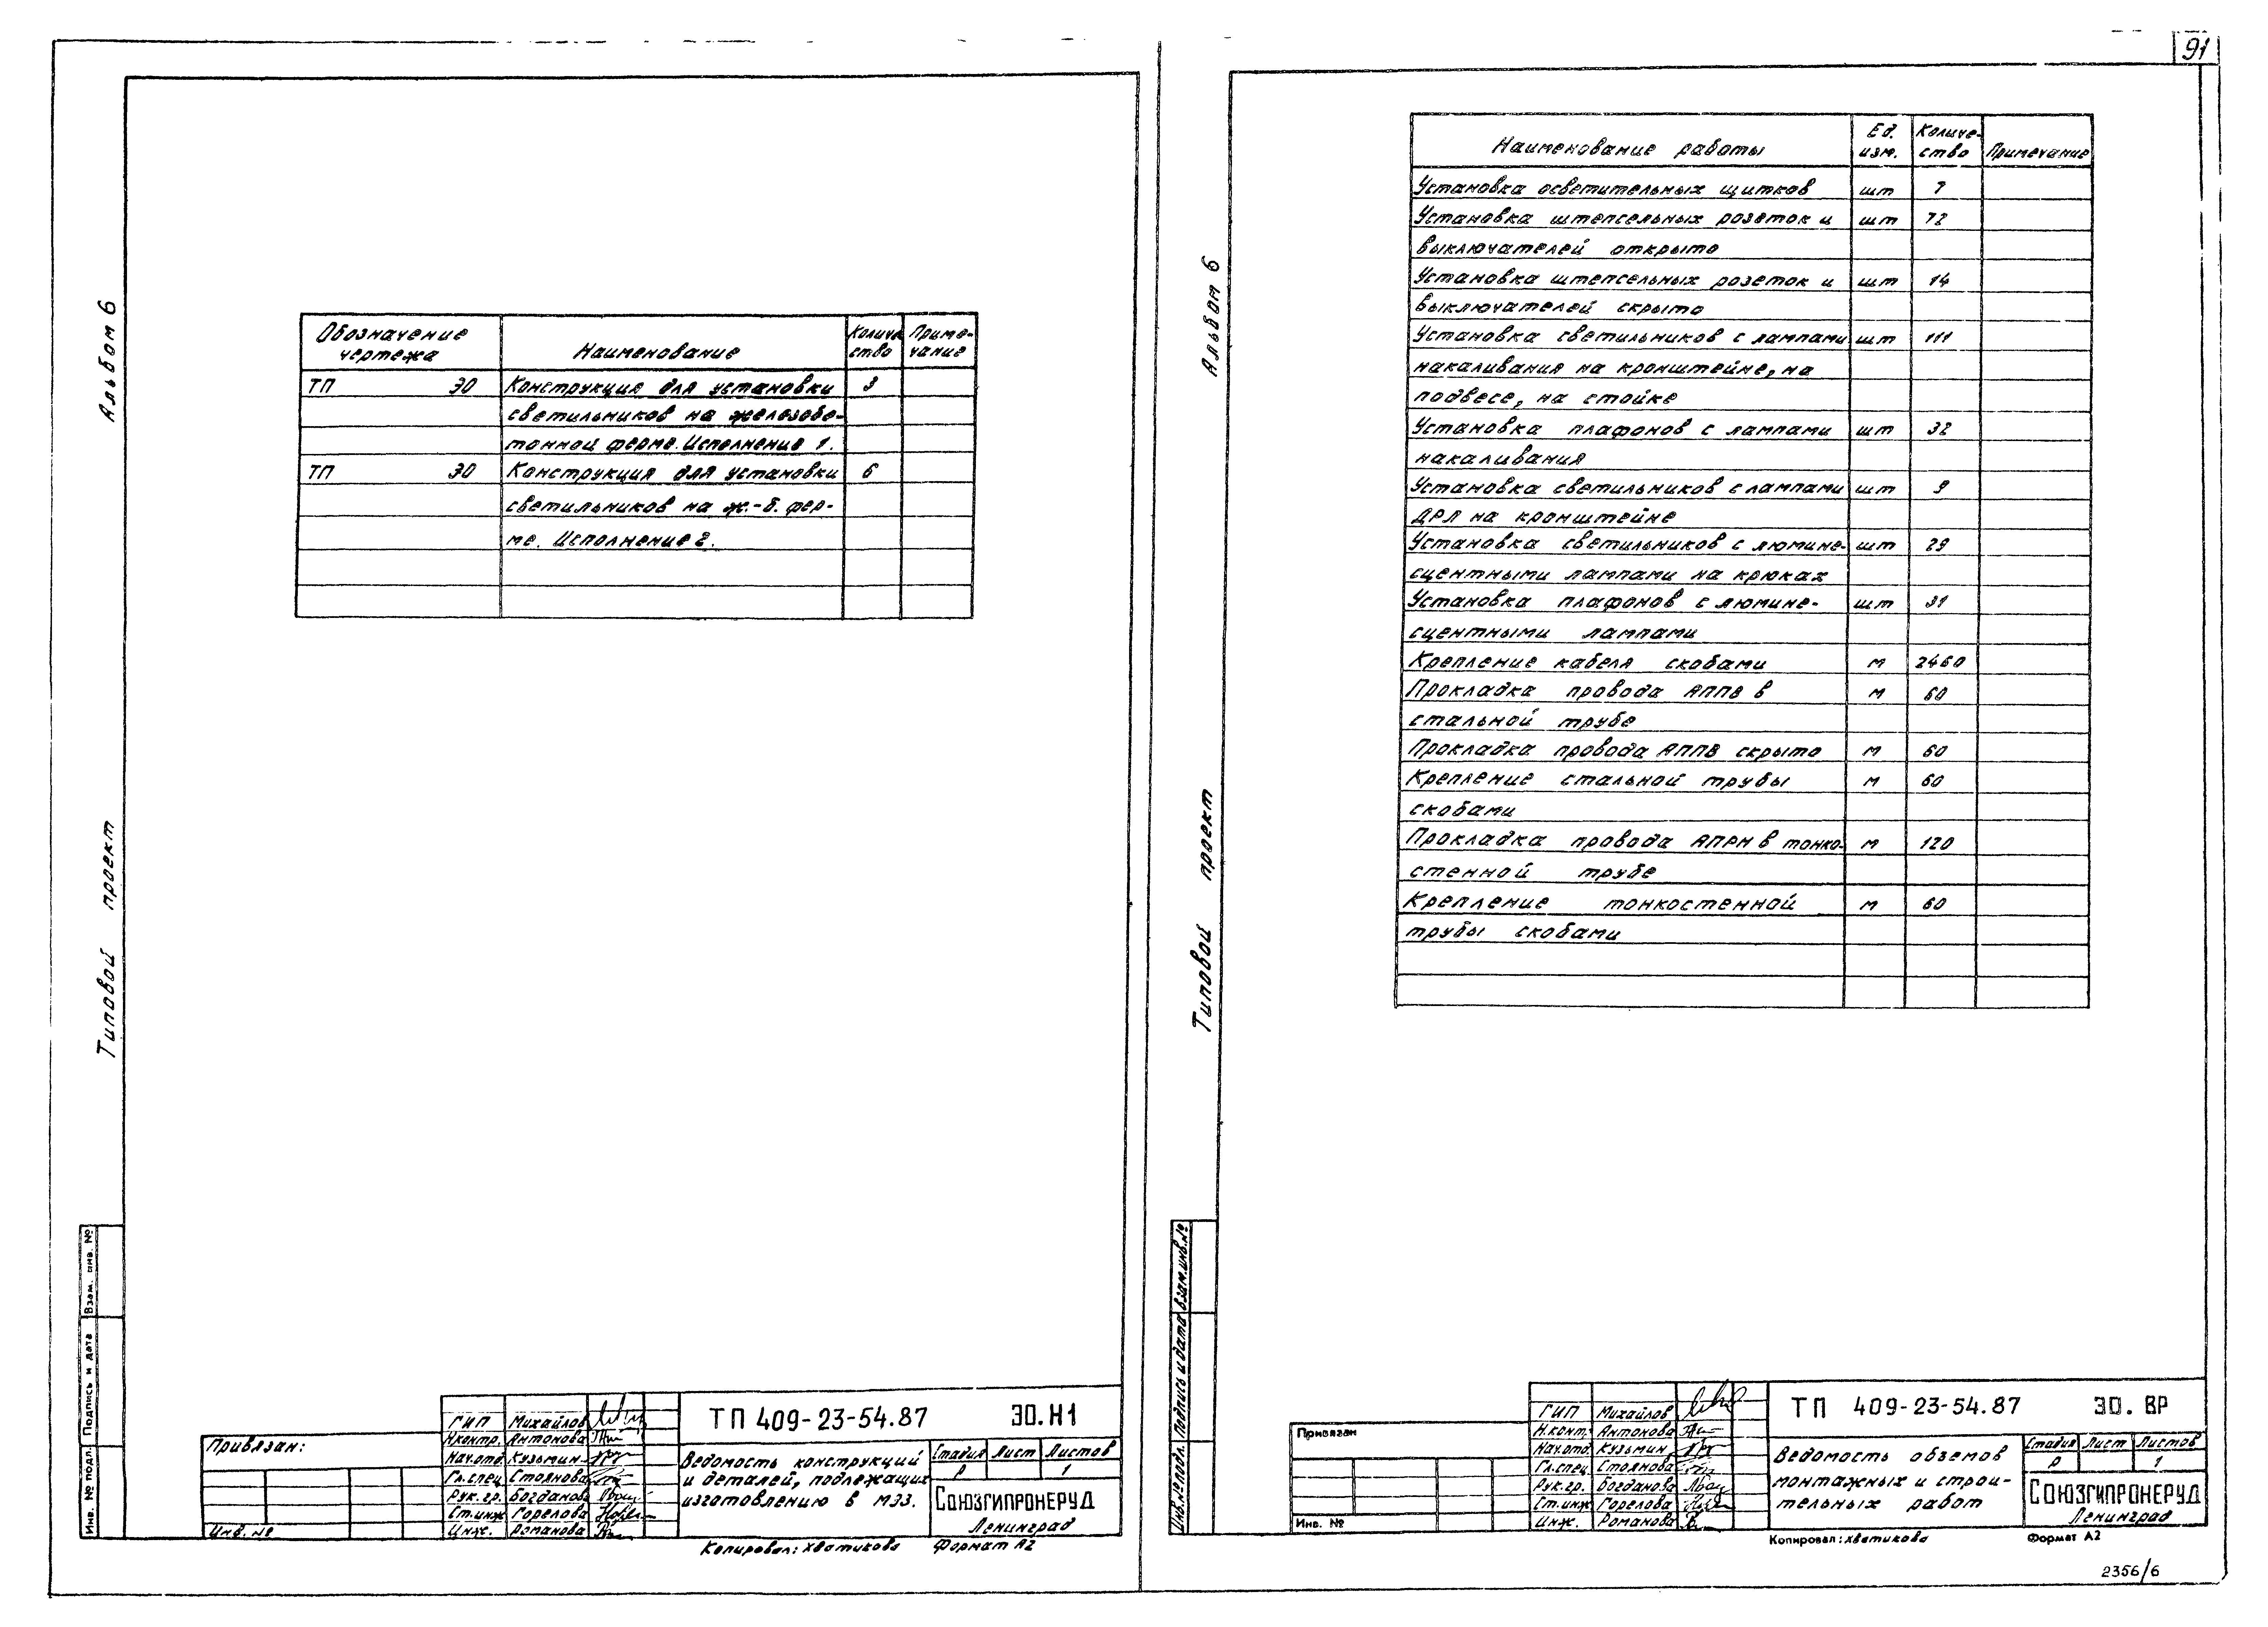 91
Альбом 6
Типовой проект
Обозначение чертежа Наименование Количе ство Приме- чание
ТП ЭО Конструкция для установки 3
светильников на железобе-
тонной ферме. Исполнение 1.
ТП ЭО Конструкция для установки 6
светильников на ж.-б. фер-
ме. Исполнение 2.
Инв. № подл. Подпись и дата Взам. инв. №
Привязан:
Инв. №
ГИП Михайлов
Н.контр. Антонова
Нач.отд. Кузьмин
Гл.спец Стоянова
Рук.гр. Богданова
Ст.инж Горелова
Инж. Романова
ТП 409-23-54.87 ЭО.Н1
Ведомость конструкций
и деталей, подлежащих
изготовлению в МЭЗ.
Стадия Лист Листов
Р 1
Союзгипронеруд
Ленинград
Копировал: Хватикова Формат А2
Альбом 6
Типовой проект
Наименование работы Ед. изм. Количе- ство Примечание
Установка осветительных щитков шт 7
Установка штепсельных розеток и шт 72
выключателей открыто
Установка штепсельных розеток и шт 14
выключателей скрыто
Установка светильников с лампами шт 111
накаливания на кронштейне, на
подвесе, на стойке
Установка плафонов с лампами шт 32
накаливания
Установка светильников с лампами шт 9
ДРЛ на кронштейне
Установка светильников с люмине- шт 29
сцентными лампами на крюках
Установка плафонов с люмине- шт 31
сцентными лампами
Крепление кабеля скобами м 2460
Прокладка провода АППВ в м 60
стальной трубе
Прокладка провода АППВ скрыто м 60
Крепление стальной трубы м 60
скобами
Прокладка провода АПРН в тонко- м 120
стенной трубе
Крепление тонкостенной м 60
трубы скобами
Инв.№ подл. Подпись и дата Взам.инв.№
Привязан
Инв. №
ГИП Михайлов
Н.конт. Антонова
Нач.отд. Кузьмин
Гл.спец. Стоянова
Рук.гр. Богданова
Ст.инж Горелова
Инж. Романова
ТП 409-23-54.87 ЭО. ВР
Ведомость объемов
монтажных и строи-
тельных работ
Стадия Лист Листов
Р 1
Союзгипронеруд
Ленинград
Копировал: Хватикова Формат А2
2356/6